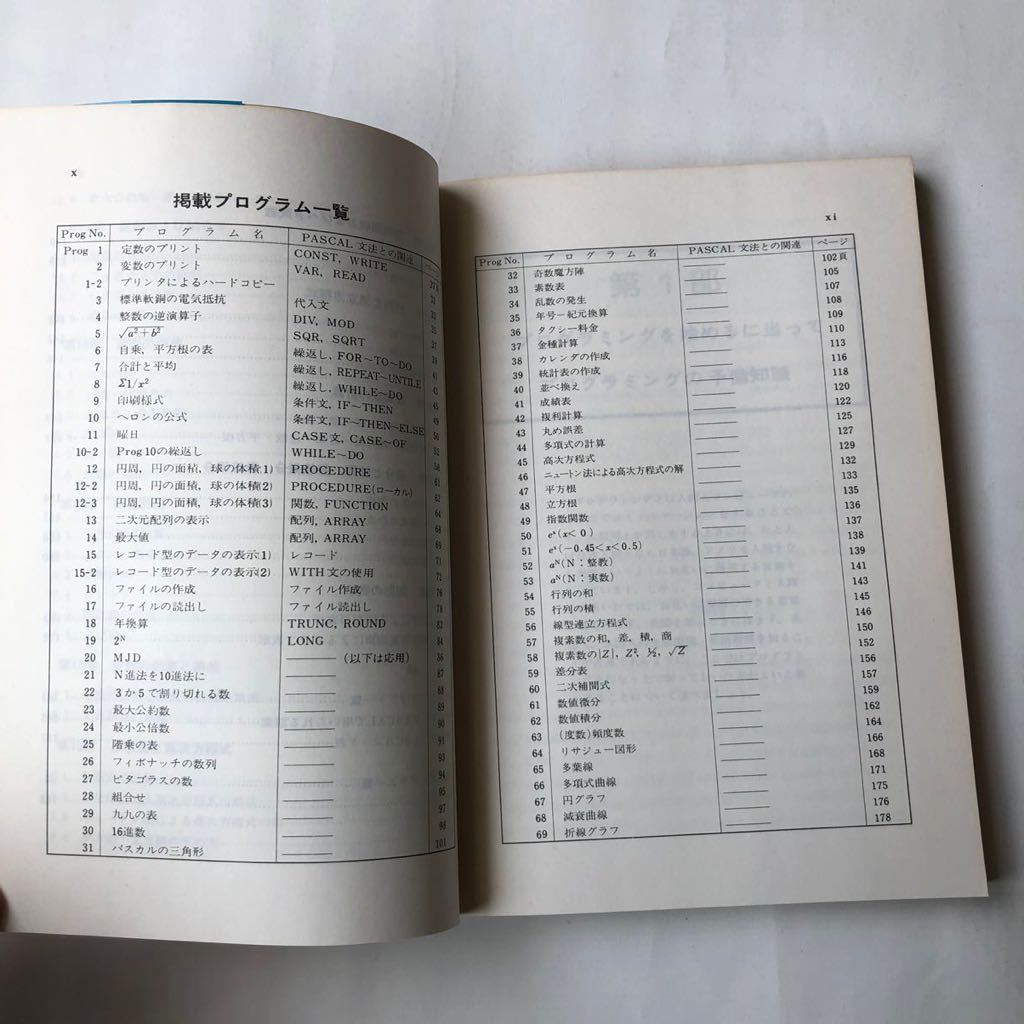 x
掲載プログラム一覧
Prog No. プログラム名 PASCAL 文法との関連 ページ
Prog 1 定数のプリント CONST, WRITE
2 変数のプリント VAR, READ
1-2 プリンタによるハードコピー
3 標準軟銅の電気抵抗 代入文
4 整数の逆演算子 DIV, MOD
5 √a²+b² SQR, SQRT
6 自乗，平方根の表 繰返し, FOR~TO~DO
7 合計と平均 繰返し, REPEAT~UNTILE
8 Σ1/x² 繰返し, WHILE~DO
9 印刷様式 条件文, IF~THEN
10 ヘロンの公式 条件文, IF~THEN~ELSE 50
11 曜日 CASE文, CASE~OF 52
10-2 Prog 10の繰返し WHILE~DO
12 円周，円の面積，球の体積(1) PROCEDURE 61
12-2 円周，円の面積，球の体積(2) PROCEDURE(ローカル) 62
12-3 円周，円の面積，球の体積(3) 関数, FUNCTION 64
13 二次元配列の表示 配列, ARRAY
14 最大値 配列, ARRAY 69
15 レコード型のデータの表示(1) レコード 71
15-2 レコード型のデータの表示(2) WITH文の使用 72
16 ファイルの作成 ファイル作成 76
17 ファイルの読出し ファイル読出し 78
18 年換算 TRUNC, ROUND 82
19 2ᴺ LONG 84
20 MJD (以下は応用) 86
21 N進法を10進法に 87
22 3か5で割り切れる数
23 最大公約数 89
24 最小公倍数 90
25 階乗の表 91
26 フィボナッチの数列 93
27 ピタゴラスの数 94
28 組合せ 95
29 九九の表 97
30 16進数 98
31 パスカルの三角形 101
xi
Prog No. プログラム名 PASCAL 文法との関連 ページ
32 奇数魔方陣 102頁
33 素数表 105
34 乱数の発生 107
35 年号−紀元換算 108
36 タクシー料金 109
37 金種計算 110
38 カレンダの作成 113
39 統計表の作成 116
40 並べ換え 118
41 成績表 120
42 複利計算 122
43 丸め誤差 125
44 多項式の計算 127
45 高次方程式 129
46 ニュートン法による高次方程式の解 132
47 平方根 133
48 立方根 135
49 指数関数 136
50 eˣ(x<0) 137
51 eˣ(−0.45<x<0.5) 138
52 aᴺ(N：整数) 139
53 aᴺ(N：実数) 141
54 行列の和 143
55 行列の積 145
56 線型連立方程式 146
57 複素数の和，差，積，商 150
58 複素数の|Z|, Z², ½, √Z 152
59 差分表 156
60 二次補間式 157
61 数値微分 159
62 数値積分 162
63 (度数)頻度数 164
64 リサジュー図形 166
65 多葉線 168
66 多項式曲線 171
67 円グラフ 175
68 減衰曲線 176
69 折線グラフ 178